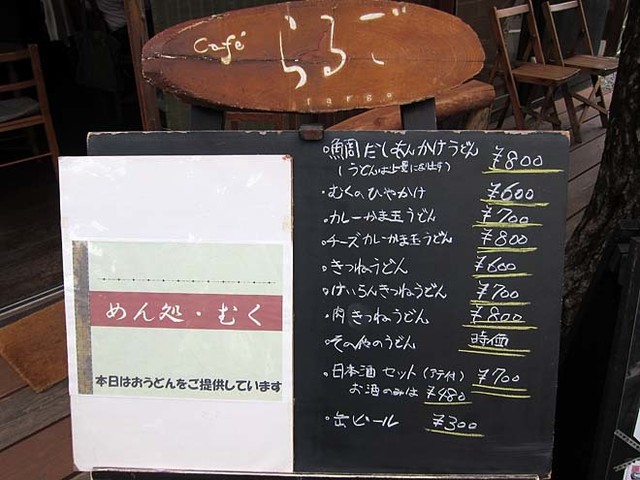 Café らるご
largo
・鯛だしあんかけうどん ¥800
・むくのひやかけ ¥600
・カレーかま玉うどん ¥700
・チーズカレーかま玉うどん ¥800
・きつねうどん ¥600
・けいらんきつねうどん ¥700
・肉きつねうどん ¥800
・その他のうどん 時価
・日本酒セット(アテ付) ¥700
お酒のみは ¥480
・缶ビール ¥300
めん処・むく
本日はおうどんをご提供しています